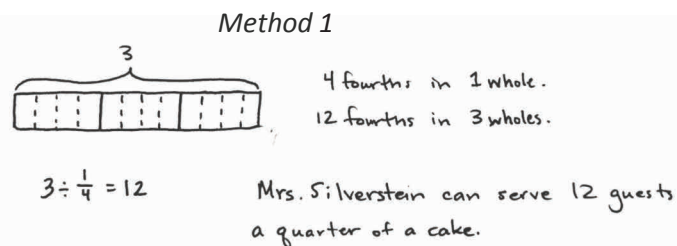 Method 1
3
4 fourths in 1 whole.
12 fourths in 3 wholes.
3 ÷ 1/4 = 12
Mrs. Silverstein can serve 12 guests
a quarter of a cake.